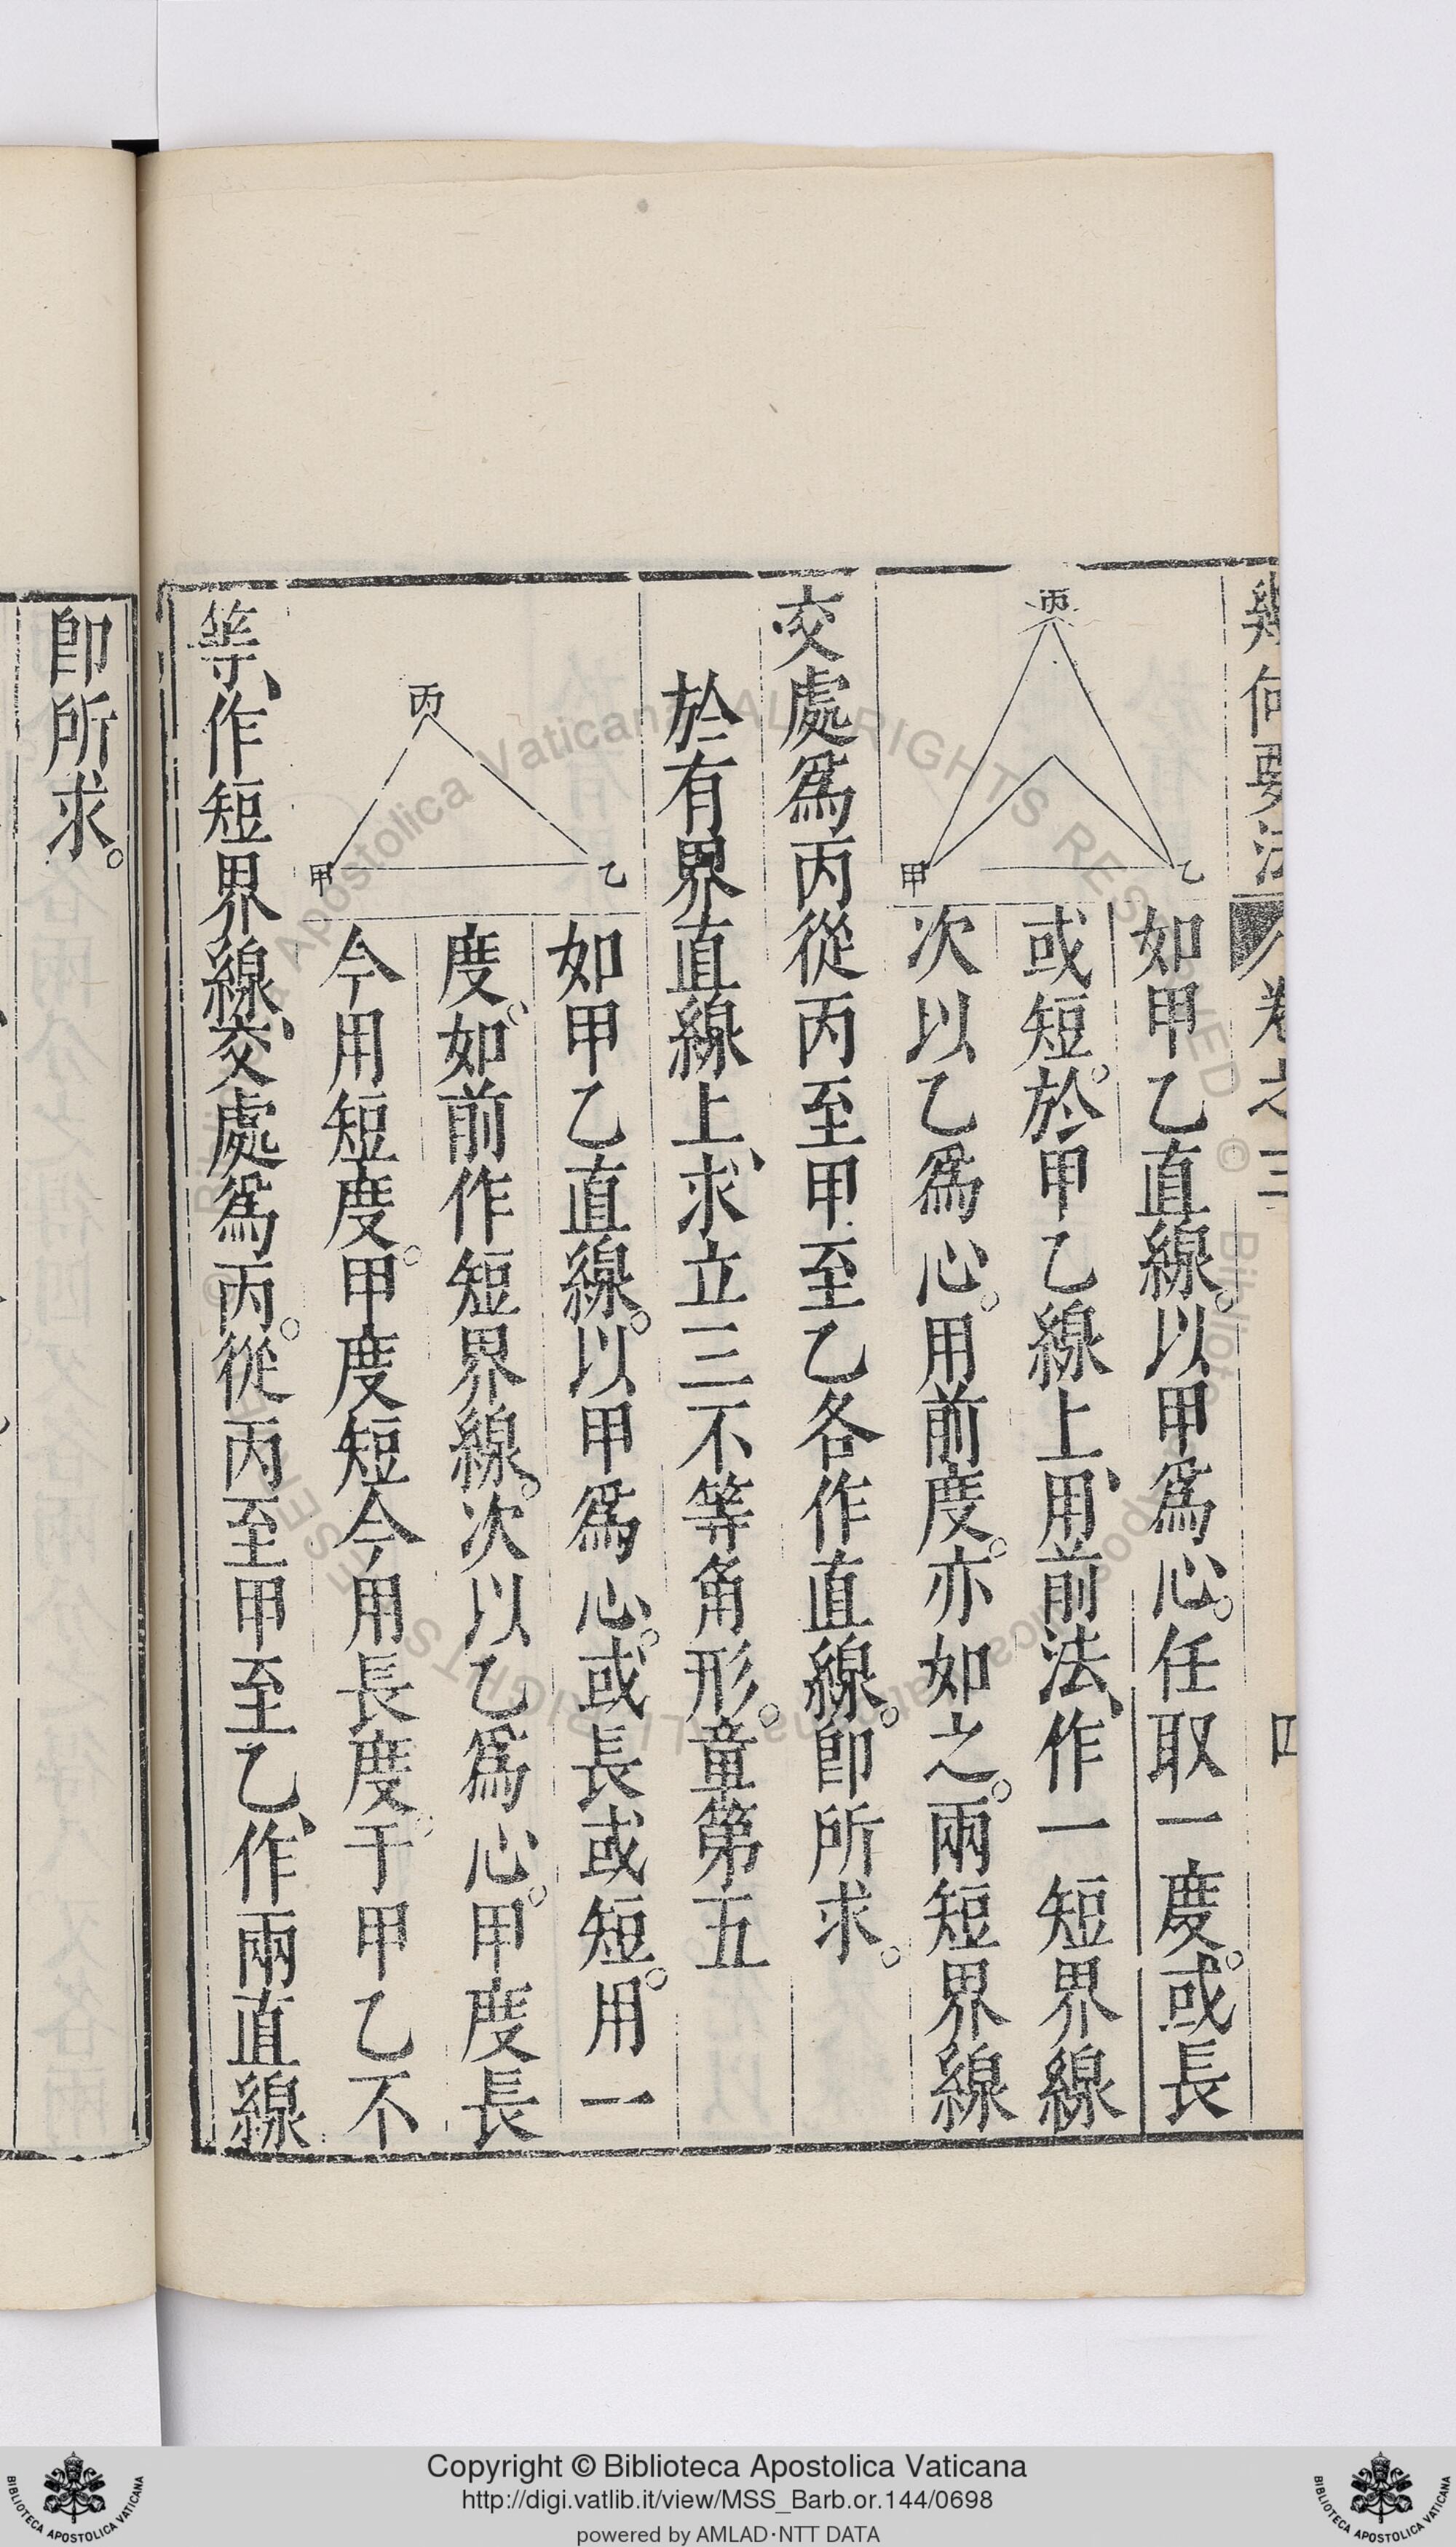 幾何要法
卷之三
四
丙
甲
乙
如甲乙直線。以甲爲心。任取一度。或長
或短。於甲乙線上、用前法、作一短界線
次以乙爲心。用前度。亦如之。兩短界線
交處爲丙從丙至甲至乙各作直線。卽所求。
於有界直線上、求立三不等角形。章第五
丙
甲
乙
如甲乙直線。以甲爲心。或長或短。用一
度。如前作短界線。次以乙爲心。甲度長
今用短度。甲度短今用長度。于甲乙不
等、作短界線、交處爲丙。從丙至甲至乙、作兩直線
卽所求。
Copyright © Biblioteca Apostolica Vaticana
http://digi.vatlib.it/view/MSS_Barb.or.144/0698
powered by AMLAD·NTT DATA
BIBLIOTECA APOSTOLICA VATICANA
BIBLIOTECA APOSTOLICA VATICANA